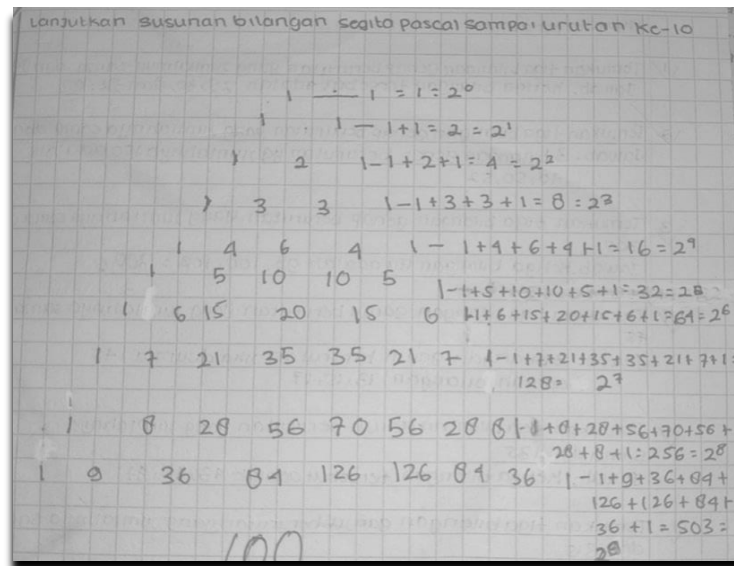 Lanjutkan susunan bilangan segita pascal sampai urutan ke-10
1 — 1 = 1 = 2⁰
1 1 — 1+1 = 2 = 2¹
1 2 1 — 1+2+1 = 4 = 2²
1 3 3 1 — 1+3+3+1 = 8 = 2³
1 4 6 4 1 — 1+4+6+4+1 = 16 = 2⁴
1 5 10 10 5 1 — 1+5+10+10+5+1 = 32 = 2⁵
1 6 15 20 15 6 1 — 1+6+15+20+15+6+1 = 64 = 2⁶
1 7 21 35 35 21 7 1 — 1+7+21+35+35+21+7+1 =
128 = 2⁷
1 8 28 56 70 56 28 8 1 — 1+8+28+56+70+56+
28+8+1 = 256 = 2⁸
1 9 36 84 126 126 84 36 1 — 1+9+36+84+
126+126+84+
36+1 = 503 =
100